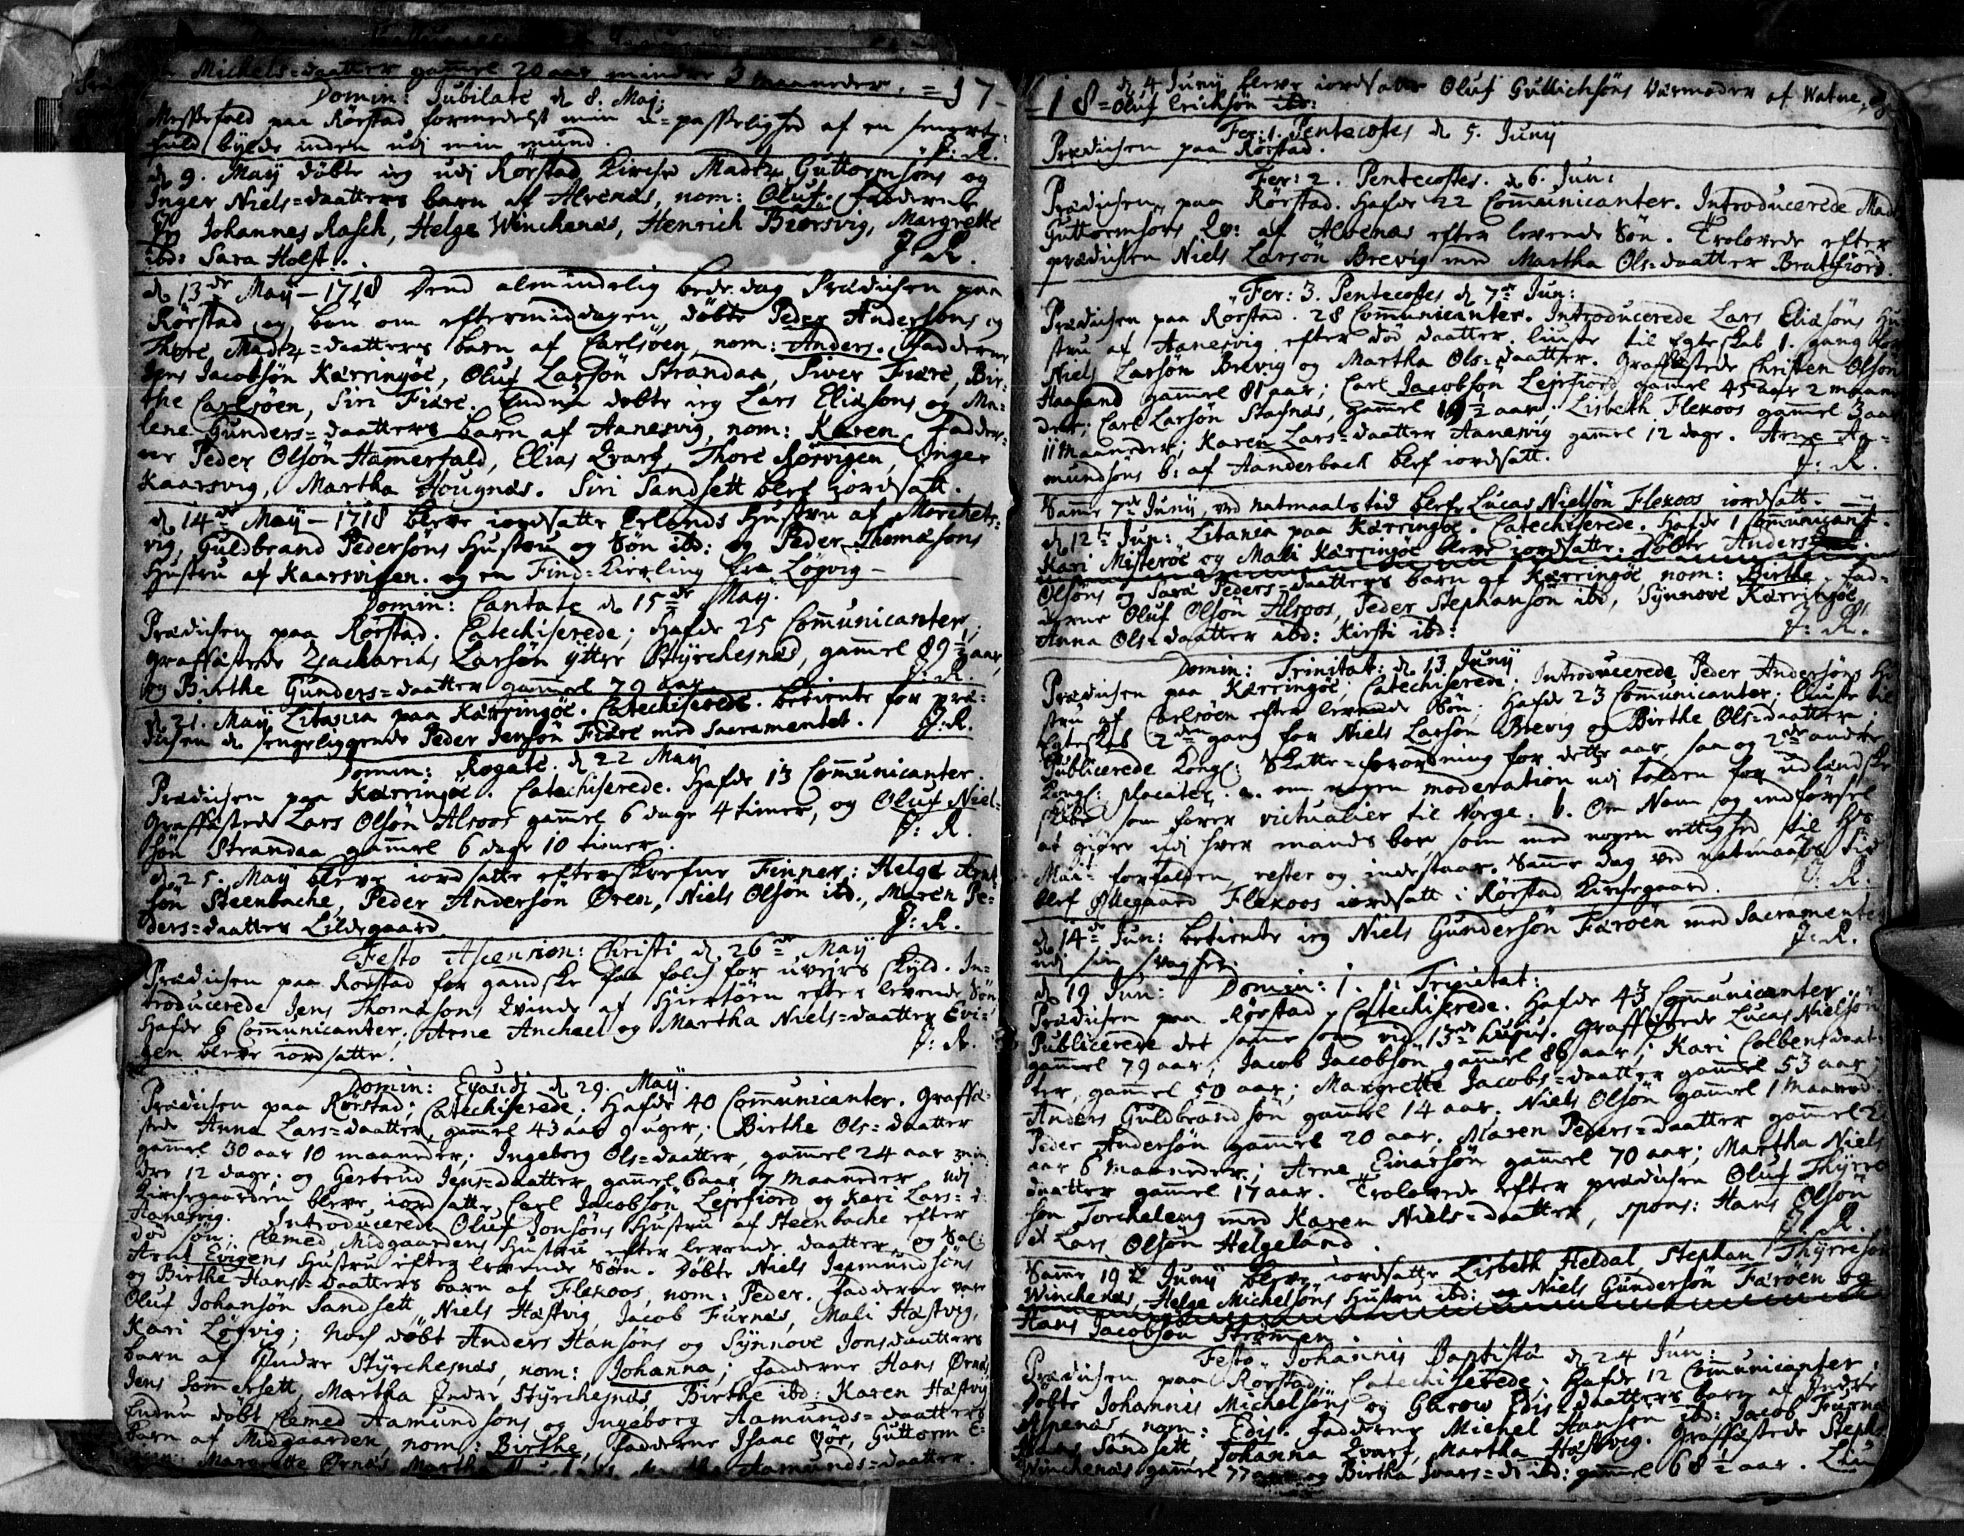 Michels=daatter gamel 20 aar mindre 3 maaneder. =17-
Domin: Jubilate d 8. Maj:
Messefald paa Rörstad formedelst min u=passelighed af en
fuld bylde inden udj min mund. J: R.
d 9. Maÿ döbte ieg udj Rörstad Kirche Madtz Guttormsöns og
Inger Niels=daatters barn af Alvenes, nom: Oluf. fadderne
Johannes Rasch, Helge Winchenæs, Henrich Brörsvig, Margrette
ibd: Sara Holst. J: R.
d 13de Maÿ - 1718 Dend almindelig bede-dag Prædichen paa
Rörstad og bøn om eftermiddagen, döbte Peder Andersöns og
Thore Madtz=daatters barn af Carlsöen, nom: Anders. fadderne
Jens Jacobsön Kærringöe, Oluf Larsön Strandaa, Siver Fiære, Bir-
the Carlsöen, Siri Fiære. Endnu döbte ieg Lars Eliasöns og Ma-
lene Gunders=daatters barn af Aanesvig, nom: Karen, fadder-
ne Peder Olsön Hamerfald, Elias Qvarf, Thore Rörvigen, Inger
Kaarsvig, Martha Hougnæs. Siri Sandsett blef iordsatt.
d 14de Maÿ - 1718 bleve iordsatte Erlends Hustru af Morchets-
vig, Guldbrand Pedersöns Hustru og Sön ibd: og Peder Thomæsöns
Hustru af Kaarsvigen. og en Find=Kierling fra Løgvig -
Domin: Cantate d 15de Maÿ.
Prædichen paa Rörstad. Catechiserede; Hafde 25 Communicanter;
Graffæstede Zacharias Larsön ÿtter Stÿrchesnæs, gamel 89½ aar,
og Birthe Gunders=daatter gamel 79 aar. J: R.
d 21. Maÿ Litania paa Kærringöe. Catechiserede. betiente for præ-
dichen de sengeliggende Peder Jensön Fiære med Sacramentet. J: R.
Domin: Rogate. d 22 Maÿ
Prædichen paa Kærringöe. Catechiserede. Hafde 13 Communicanter.
Graffæstede Lars Olsön Alsoos gamel 6 dage 4 timer, og Oluf Niel-
sön Strandaa gamel 6 dage 10 timer. J: R.
d 25. Maÿ bleve iordsatte efterskrefne Finner: Helge Arnt
sön Steenbache, Peder Andersön Øren, Niels Olsön ibd., Maren Pe-
ders=daatter Lildegaard. J: R.
Festo Ascension: Christi d. 26de Maÿ
Prædichen paa Rörstad for gandske faa folch for uveirs skÿld. In-
troducerede Jens Thomæsöns Qvinde af Hiertöen efter levende Sön
Hafde 6 Communicanter, Arne Anchael og Martha Niels=daatter Evi-
gen bleve iordsatte. J: R.
Domin: Exaudj d 29. Maÿ.
Prædichen paa Rörstad; Catechiserede. Hafde 40 Communicanter. Graffæ-
stede Anna Lars=daatter gamel 43 aar 9 uger; Birthe Ols=daatter
gamel 30 aar 10 maaneder; Ingeborg Ols=daatter, gamel 24 aar min
dre 12 dage; og Gertrud Jens=daatter gamel 6 aar 7 maaneder udj
Kirchegaarden bleve iordsatte Carl Jacobsön Lejrfiord og Kari Lars=d:
Aanesvig. Introducerede Oluf Jonsöns Hustru af Steenbache efter
död sön; Clemed Midgaardens Hustru efter levende daatter, og Sal:
Arnt Evigens Hustru efter levende Sön. Döbte Niels Jermundsöns
og Birthe Hans=daatters barn af Flexoos, nom: Peder. fadderne vare
Oluf Johansön Sandsett, Niels Hæstvig, Jacob Furnæs, Mali Hæstvig,
Kari Løgvig; Noch döbt Anders Hansöns og Sÿnnove Jonsdaatters
barn af Indre Stÿrchesnæs, nom: Johanna; fadderne Hans Ørnæs
Jens Somersett, Martha Indre Stÿrchesnæs Birthe ibd: Karen Hæstvig
Endnu döbt Clemed Aamundsöns og Ingeborg Aamunds=daatters
barn af Midgaarden, nom: Birthe, fadderne Isaac Vøe, Guttorm E-
Margrette Ørnæs Martha Aamunds=daatter.
-18= d 4 Junÿ bleve iordsatte Oluf Gullichsöns Værmoder af Watne,
Oluf Erichsön ibd:
Fer: 1. Pentecostes d 5. Junÿ
Prædichen paa Rörstad.
Fer: 2. Pentecostes. d 6. Jun:
Prædichen paa Rörstad. Hafde 22 Communicanter. Introducerede Madtz
Guttormsöns Qv: af Alvenæs efter levende Sön. Trolovede efter
prædichen Niels Larsön Brevig med Martha Ols=daatter Bratfiord.
Fer: 3. Pentecostes d 7de Jun:
Prædichen paa Rörstad. 28 Communicanter. Introducerede Lars Eliæsöns Hu-
stru af Aanesvig efter död daatter. liuste til Egteskab 1. gang for
Niels Larsön Brevig og Martha Ols=daatter. Graffæstede Christen Olsön
Haasand gamel 81 aar; Carl Jacobsön Lejrfiord gamel 45 aar 2 maane
der; Carl Larsön Stafnæs, gamel 19½ aar. Lisbeth Flexoos gamel 3 aar
11 maaneder; Karen Lars=daatter Aanesvig gamel 12 dage. Arne Aa-
mundsöns b: af Aanderbach blef iordsatt. J: R.
Samme 7de Junÿ, ved natmaals tid blef Lucas Nielsön Flexoos iordsatt. -
d 12te Jun: Litania paa Kærringöe. Catechiserede. Hafde 1 Communicant.
Kari Misteröe og Mali Kærringöe bleve iordsatte. Döbte Anders
Olsöns og Sara Peders=daatters barn af Kærringöe nom: Birthe. fad-
derne Oluf Olsön Alsoos, Peder Stephansön ibd, Sÿnnove Kærringöe
Anna Ols=daatter ibd: Kirsti ibd: J: R.
Domin: Trinitat: d 13 Junÿ
Prædichen paa Kærringöe, Catechiserede. Introducerede Peder Andersöns Hu
stru af Carlsöen efter levende Sön; Hafde 23 Communicanter; liuste til
Egteskab 2den gang for Niels Larsön Brevig og Birthe Ols=daatter;
Publicerede Kongl: Skatte=forordning for dette aar, saa og 2de andre
Kongl: placater. a. om nogen moderation udj tolden for udlændske
skibe som fører victualier til Norge. b. Om Nam og indførsel
at gjøre udj hver mands boe, som med nogen rettighed til Hs
Maÿt: forfalden rester og indestaar. Samme dag ved natmaals tid
blef Østegaard Flexoos iordsatt i Rörstad Kirchegaard. J: R.
d 14de Jun: betiente ieg Niels Gundersön Færöen med Sacramentet
udj sin svaghed. J: R.
d 19 Jun: Domin: 1. p: Trinitat:
Prædichen paa Rörstad, Catechiserede. Hafde 43 Communicanter
Publicerede det samme som vid 13de hujus. Graffæstede Lucas Nielsön
gamel 79 aar; Jacob Jacobsön gamel 86 aar; Kari Colbensdaat-
ter, gamel 50 aar; Margrette Jacobs=daatter gamel 53 aar;
Anders Guldbrandsön gamel 14 aar. Niels Olsön gamel 1 maaned
Peder Andersön gamel 20 aar. Maren Peders=daatter gamel 2
aar 6 maaneder; Arne Einarsön gamel 70 aar; Martha Niels
daatter gamel 17 aar. Trolovede efter prædichen Oluf Thÿrre
sön Torcheleng med Karen Niels=daatter, spons: Hans Olsön
et Lars Olsön Helgeland. J: R.
Samme 19de Junÿ bleve iordsatte Lisbeth Heldal, Stephan Thÿrresön
Winchenæs, Helge Michelsöns Hustru ibd: og Niels Gundersön Færöen og
Hans Jacobsön Strömen.
Festo Johannis Baptistæ d 24 Jun:
Prædichen paa Rörstad; Catechiserede; Hafde 12 Communicanter;
Döbte Johannis Michelsöns og Gurow Edis=daatters barn af Indre
Aspenæs, nom: Edis. fadderne Michel Hansön ibd: Jacob Furnæs
Hans Sandsett, Johanna Qvarf, Martha Hæstvig. Graffæstede Steph
Winchenæs gamel 77 aar og Birtha Ivars=d: ibd: gamel 68½ aar.